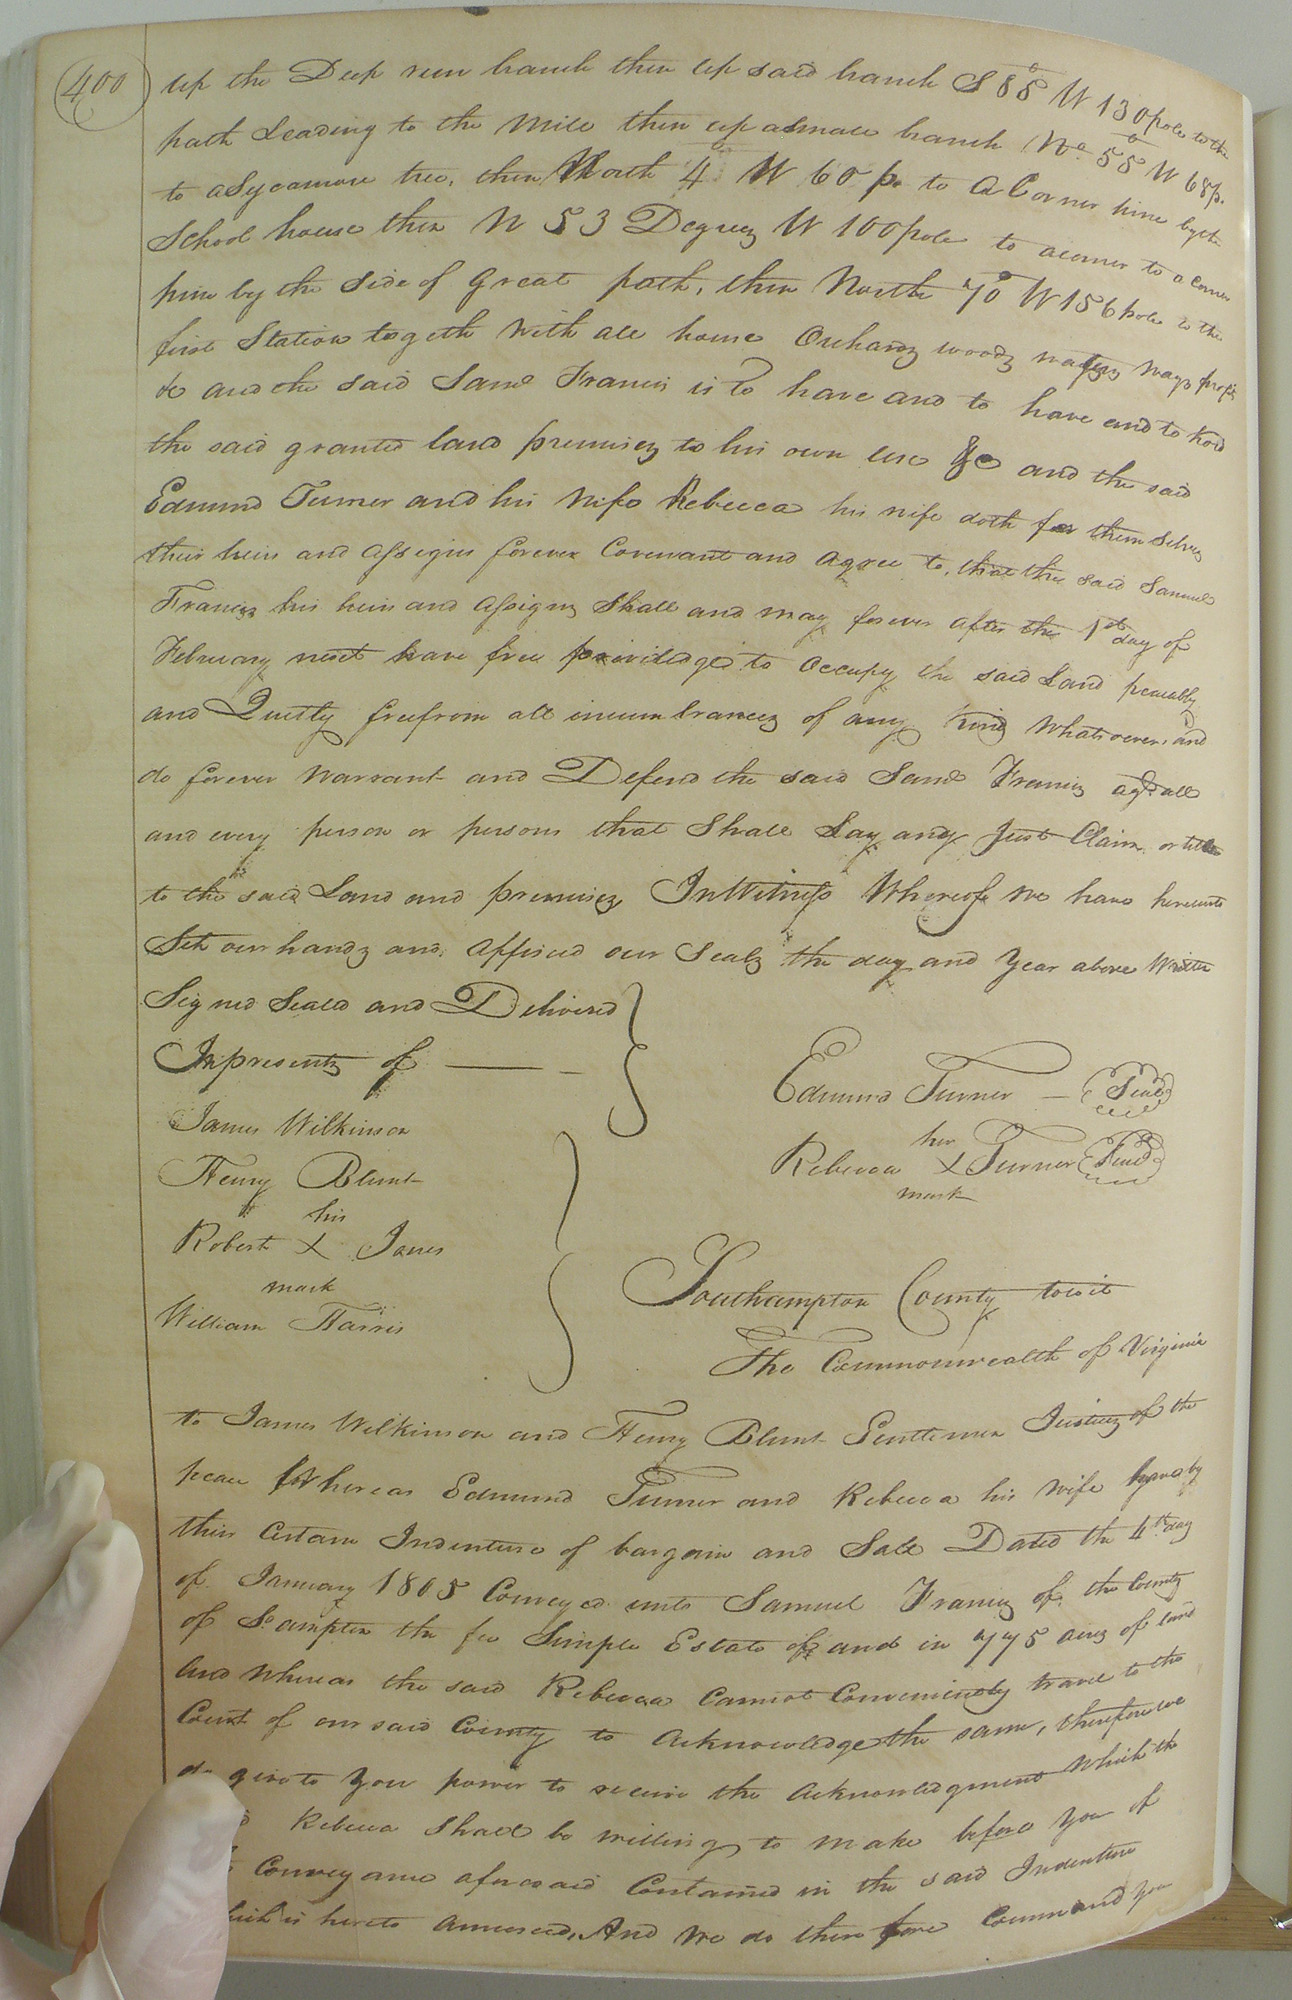 400
up the Deep run branch then up said branch S 88° W 130 pole to the
path Leading to the Mile then up asmall branch No. 55° W 68 p.
to a Sycamore tree, then North 4° W 60 p. to a Corner hine by the
School house then N 53 Degreez W 100 pole to acorner to a corner
pine by the Side of Great path, then North 70° W 156 pole to the
first Station togeth with all house Orchardz woodz waterz ways profits
&c and the said Saml Francis is To have and to have and to hold
the said granted land premisez to his own use &c and the said
Edmund Turner and his Wife Rebecca his wife doth for them Selves
their heirs and Assigns forever Covenant and agree to, that the said Samuel
Francis his heirs and Assignz Shall and may forever after the 1st day of
February next have free priviledge to occupy the said Land peceably
and Quietly freefrom all incumbrancez of any kind whatsoever, and
do forever Warrant and Defend the said Saml Francis agst all
and every person or persons that Shall Lay any Just Claim or title
to the said Land and premisez In Witness Whereof we have hereunto
Set our handz and affixed our Sealz the day and Year above Written
Signed Seald and Delivered
In presentz of
Edmund Turner — Seal
James Wilkinson
her
Rebecca X Turner Seal
mark
Henry Blunt
his
Robert X Jones
mark
William Harris
Southampton County towit
The Commonwealth of Virginia
to James Wilkinson and Henry Blunt Gentlemen Justicez of the
peace Whereas Edmund Turner and Rebecca his Wife have by
thier Certain Indenture of bargain and Sale Dated the 4th day
of January 1805 Conveyed unto Samuel Francis of the County
of So. ampton the fee Simple Estate of and in 775 acrez of land
and whereas the said Rebecca Cannot Conveniently travel to the
Court of our said County to Acknowledge the same, therefore we
do give to You power to receive the Acknowledgment Which the
Rebecca Shall be willing to make before You of
Conveyance aforesaid Contained in the said Indenture
is hereto annexed, And we do there fore Command You